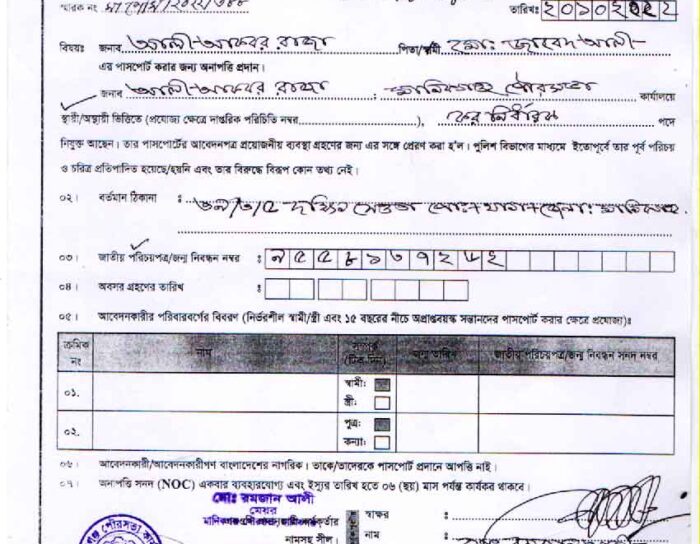 স্মারক নং মা/পৌ/স/২০২২/ তারিখঃ ২০১০২
বিষয়ঃ জনাব আলী-আকবর রাজা পিতা/স্বামী মোঃ জাবেদ আলী-
এর পাসপোর্ট করার জন্য অনাপত্তি প্রদান।
জনাব আলী-আকবর রাজা ; মানিকগঞ্জ পৌরসভা কার্যালয়ে
স্থায়ী/অস্থায়ী ভিত্তিতে (প্রযোজ্য ক্ষেত্রে দাপ্তরিক পরিচিতি নম্বর....................), কর নির্ধারক পদে
নিযুক্ত আছেন। তার পাসপোর্টের আবেদনপত্র প্রয়োজনীয় ব্যবস্থা গ্রহণের জন্য এর সঙ্গে প্রেরণ করা হ'ল। পুলিশ বিভাগের মাধ্যমে ইতোপূর্বে তার পূর্ব পরিচয়
ও চরিত্র প্রতিপাদিত হয়েছে/হয়নি এবং তার বিরুদ্ধে বিরূপ কোন তথ্য নেই।
০২। বর্তমান ঠিকানা : দক্ষিন সেওতা পোঃ+থানা+জেলাঃ মানিকগঞ্জ.
০৩। জাতীয় পরিচয়পত্র/জন্ম নিবন্ধন নম্বর : ১৩৭২
০৪। অবসর গ্রহণের তারিখ :
০৫। আবেদনকারীর পরিবারবর্গের বিবরণ (নির্ভরশীল স্বামী/স্ত্রী এবং ১৫ বছরের নীচে অপ্রাপ্তবয়স্ক সন্তানদের পাসপোর্ট করার ক্ষেত্রে প্রযোজ্য)ঃ
ক্রমিক নং নাম সম্পর্ক (টিক দিন) জন্ম তারিখ জাতীয় পরিচয়পত্র/জন্ম নিবন্ধন সনদ নম্বর
০১. স্বামী:
স্ত্রী:
০২. পুত্র:
কন্যা:
০৬। আবেদনকারী/আবেদনকারীগণ বাংলাদেশের নাগরিক। তাকে/তাদেরকে পাসপোর্ট প্রদানে আপত্তি নাই।
০৭। অনাপত্তি সনদ (NOC) একবার ব্যবহারযোগ্য এবং ইস্যুর তারিখ হতে ০৬ (ছয়) মাস পর্যন্ত কার্যকর থাকবে।
মোঃ রমজান আলী
মেয়র স্বাক্ষর :
মানিকগঞ্জ পৌরসভা
নামসহ সীল। নাম :